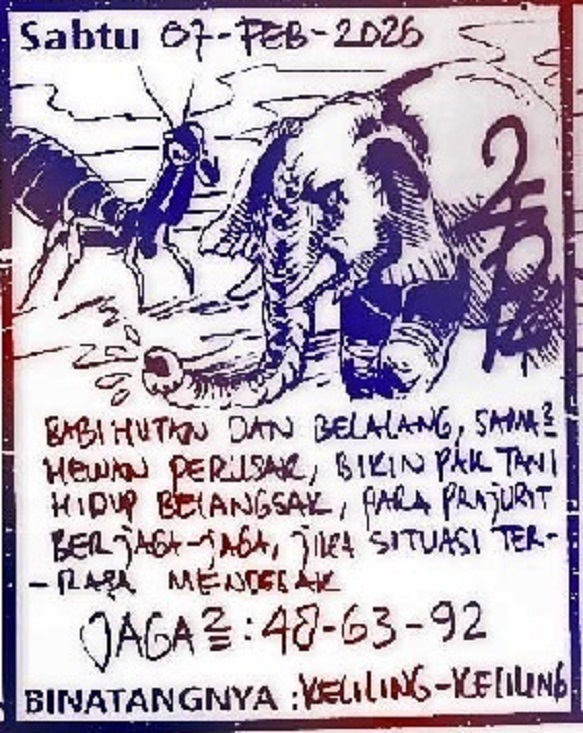 Sabtu 07-FEB-2026
BABI HUTAN DAN BELALANG, SAMA²
HEWAN PERUSAK, BIKIN PAK TANI
HIDUP BELANGSAK, PARA PRAJURIT
BERJAGA-JAGA, JIKA SITUASI TER-
-RASA MENDESAK
JAGA²: 48-63-92
BINATANGNYA : KELILING-KELILING